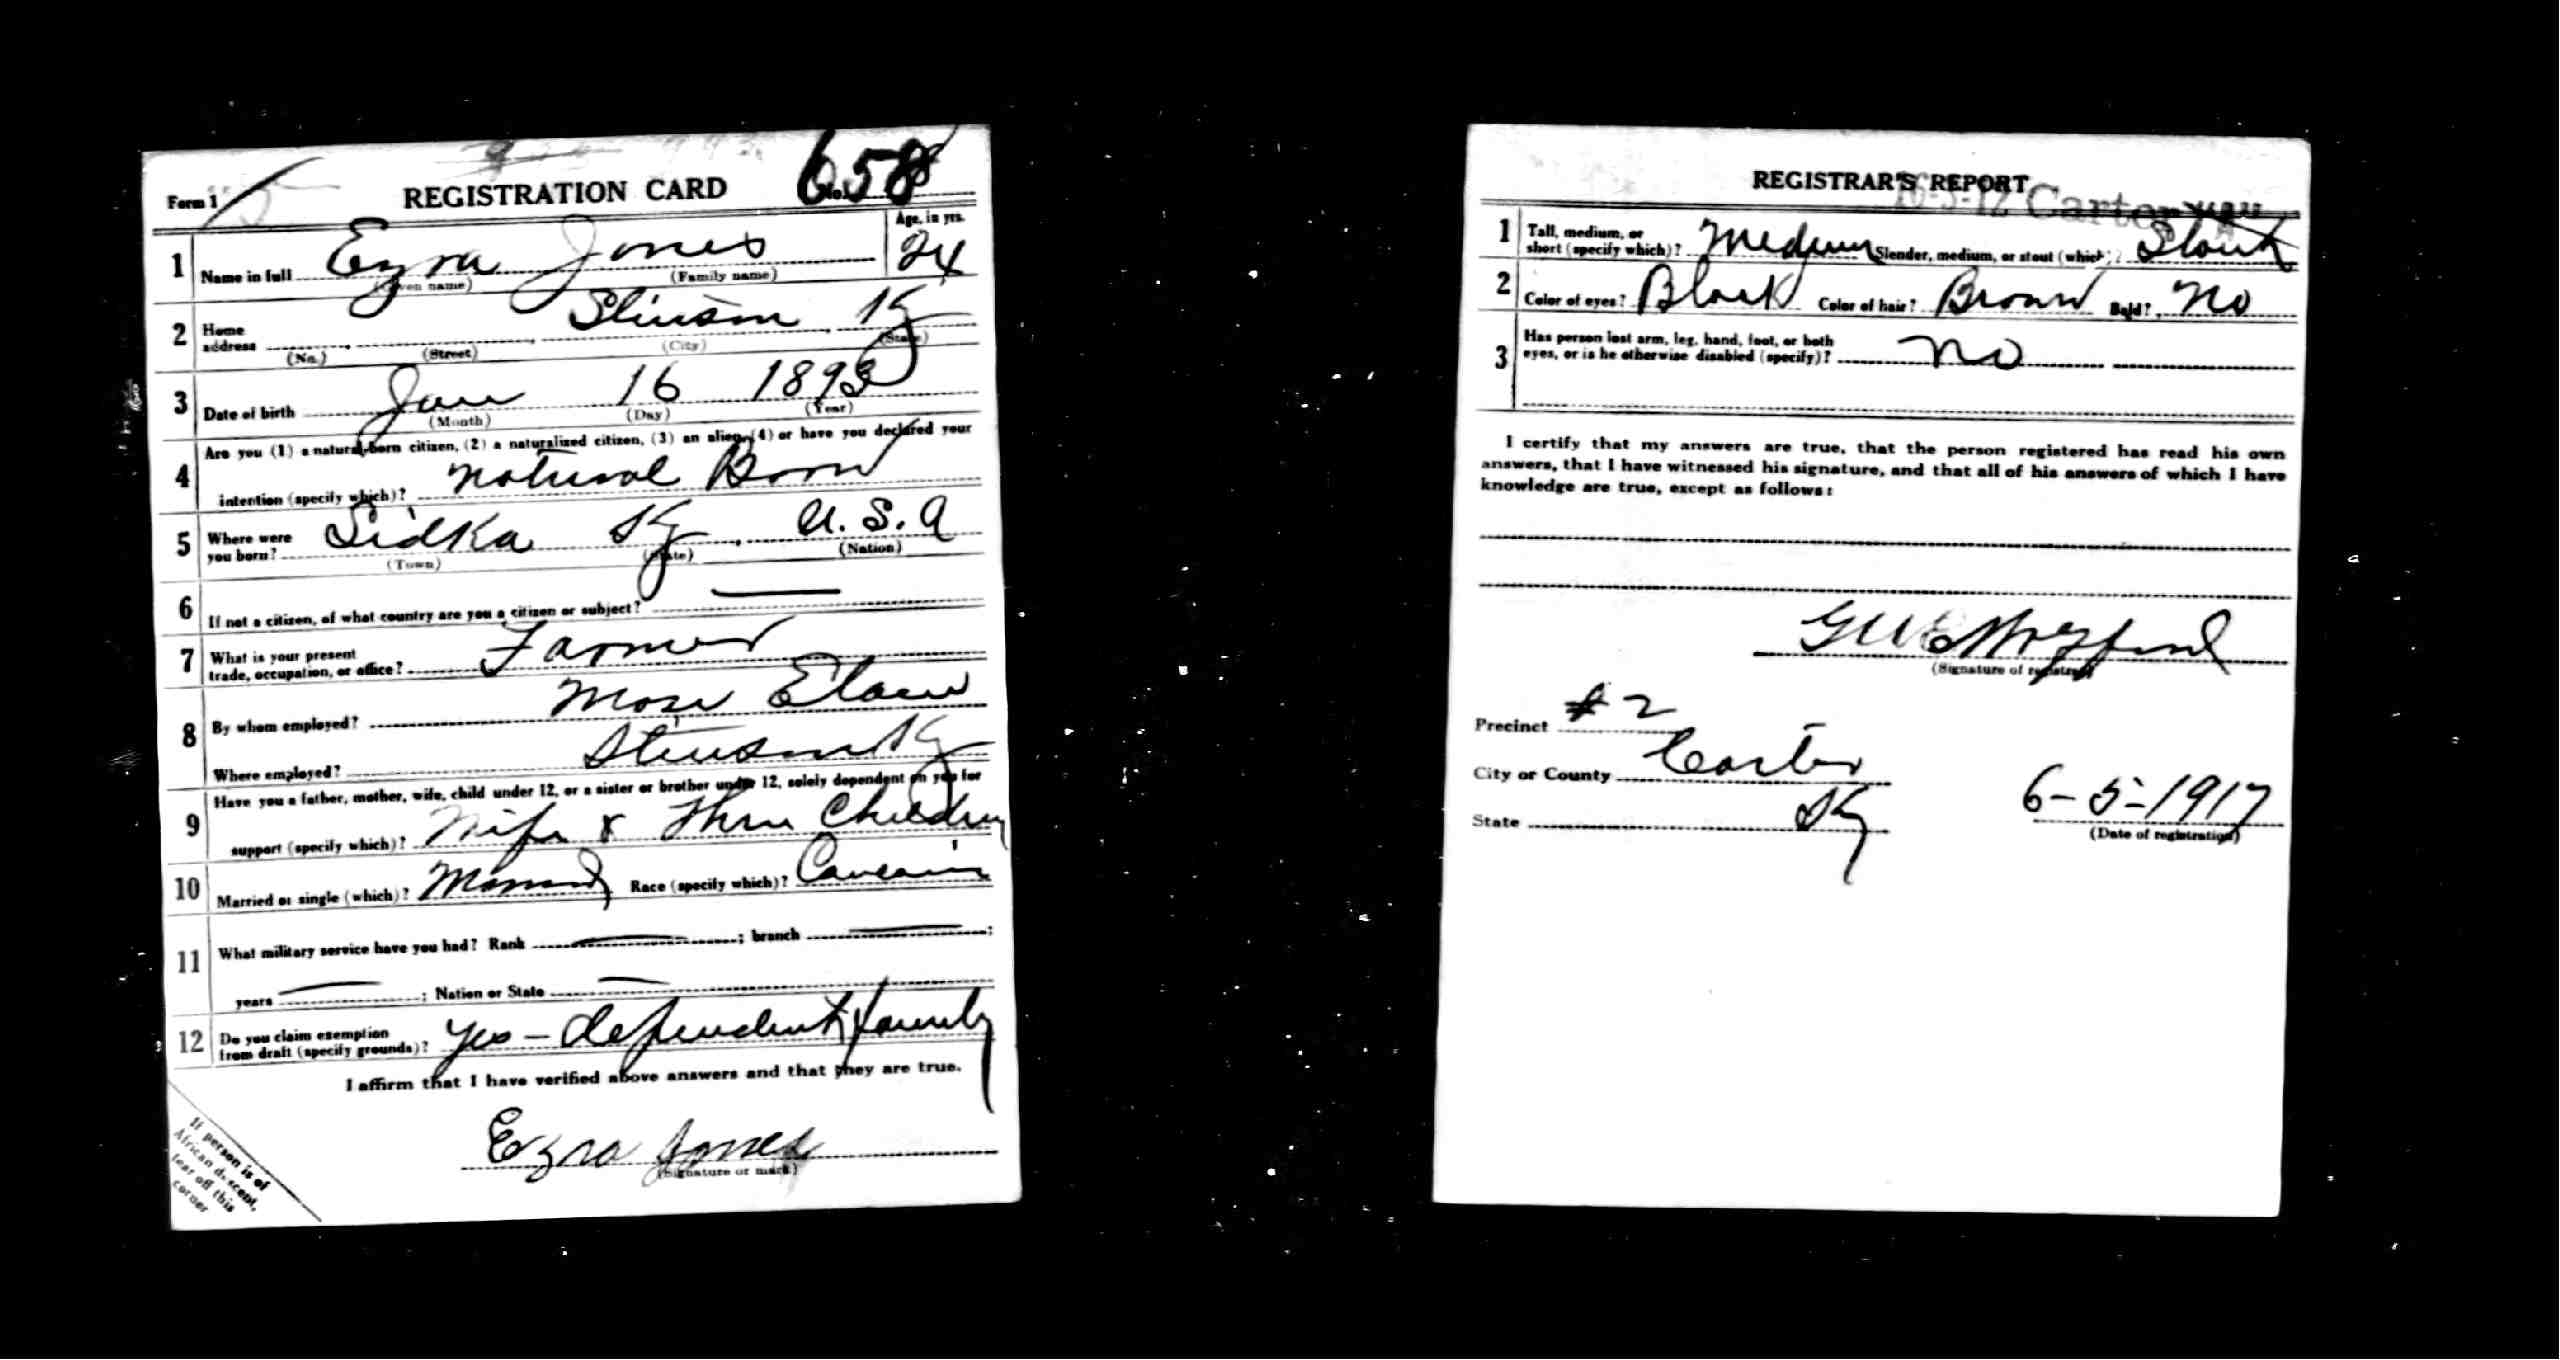 Form 1
REGISTRATION CARD
No. 658
1 Name in full Ezra Jones
(Given name) (Family name)
Age, in yrs.
24
2 Home address Stinson, Ky
(No.) (Street) (City) (State)
3 Date of birth Jan 16 1893
(Month) (Day) (Year)
4 Are you (1) a natural-born citizen, (2) a naturalized citizen, (3) an alien, (4) or have you declared your
intention (specify which)? natural Born
5 Where were you born? Sidka Ky, U.S.A
(Town) (State) (Nation)
6 If not a citizen, of what country are you a citizen or subject? —
7 What is your present trade, occupation, or office? Farmer
8 By whom employed? Mose
Where employed? Stinson Ky
9 Have you a father, mother, wife, child under 12, or a sister or brother under 12, solely dependent on you for
support (specify which)? Wife & Three Children
10 Married or single (which)? Married Race (specify which)? Caucasian
11 What military service have you had? Rank — ; branch — ;
years — ; Nation or State —
12 Do you claim exemption from draft (specify grounds)? yes – dependent family
I affirm that I have verified above answers and that they are true.
Ezra Jones
(Signature or mark)
If person is of
African descent,
tear off this
corner
REGISTRAR'S REPORT
Carter
1 Tall, medium, or short (specify which)? Medium Slender, medium, or stout (which)? Stout
2 Color of eyes? Black Color of hair? Brown Bald? No
3 Has person lost arm, leg, hand, foot, or both eyes, or is he otherwise disabled (specify)? no
I certify that my answers are true, that the person registered has read his own
answers, that I have witnessed his signature, and that all of his answers of which I have
knowledge are true, except as follows:
(Signature of registrar)
Precinct #2
City or County Carter
State Ky
6-5-1917
(Date of registration)